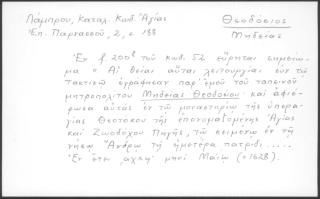 Λάμπρου, Καταλ. Κωδ. Ἁγίας
Θεοδόσιος
Ἐπ. Παρνασσοῦ, 2, σ. 188
Μηδείας
Ἐν f. 200β τοῦ κωδ. 52 εὕρηται σημείω-
μα " Αἱ θεῖαι αὗται λειτουργίαι σὺν τῷ
τακτικῷ ἐγράφησαν παρ' ἐμοῦ τοῦ ταπεινοῦ
μητροπολίτου Μηδείας Θεοδοσίου καὶ ἀφιέ-
ρωσα αὐτὰς ἐν τῷ μοναστηρίῳ τῆς ὑπερα-
γίας Θεοτόκου τῆς ἐπονομαζομένης Ἁγίας
καὶ Ζωοδόχου Πηγῆς, τῷ κειμένῳ ἐν τῇ
νήσῳ Ἄνδρῳ τῇ ἡμετέρᾳ πατρίδι.....
Ἐν ἔτει αχκη' μηνὶ Μαΐῳ (=1628).